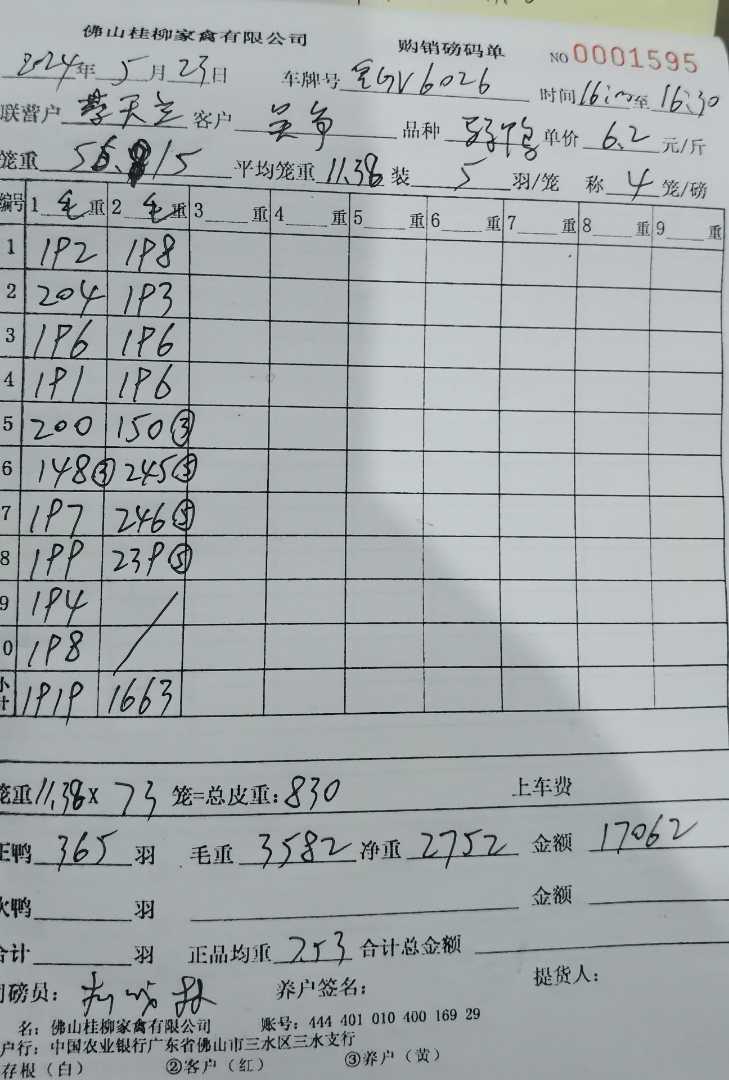 佛山桂柳家禽有限公司 购销磅码单 NO 0001595
2024年 5月23日 车牌号 GV6026 时间16:00至16:30
联营户 客户 品种 单价 6.2 元/斤
笼重 56.15 平均笼重 11.38 装 5 羽/笼 称 4 笼/磅
编号 1 毛重 2 毛重 3 重 4 重 5 重 6 重 7 重 8 重 9 重
1 192 198
2 204 193
3 196 196
4 191 196
5 200 150③
6 148③ 245⑤
7 197 246⑤
8 199 239⑤
9 194 /
0 198
小计 1919 1663
笼重11.38× 73 笼=总皮重:830 上车费
正鸭 365 羽 毛重 3582 净重 2752 金额 17062
次鸭 羽 金额
合计 羽 正品均重 7.53 合计总金额
司磅员: 养户签名: 提货人:
名:佛山桂柳家禽有限公司 账号:444 401 010 400 169 29
户行:中国农业银行广东省佛山市三水区三水支行
存根(白) ②客户(红) ③养户(黄)